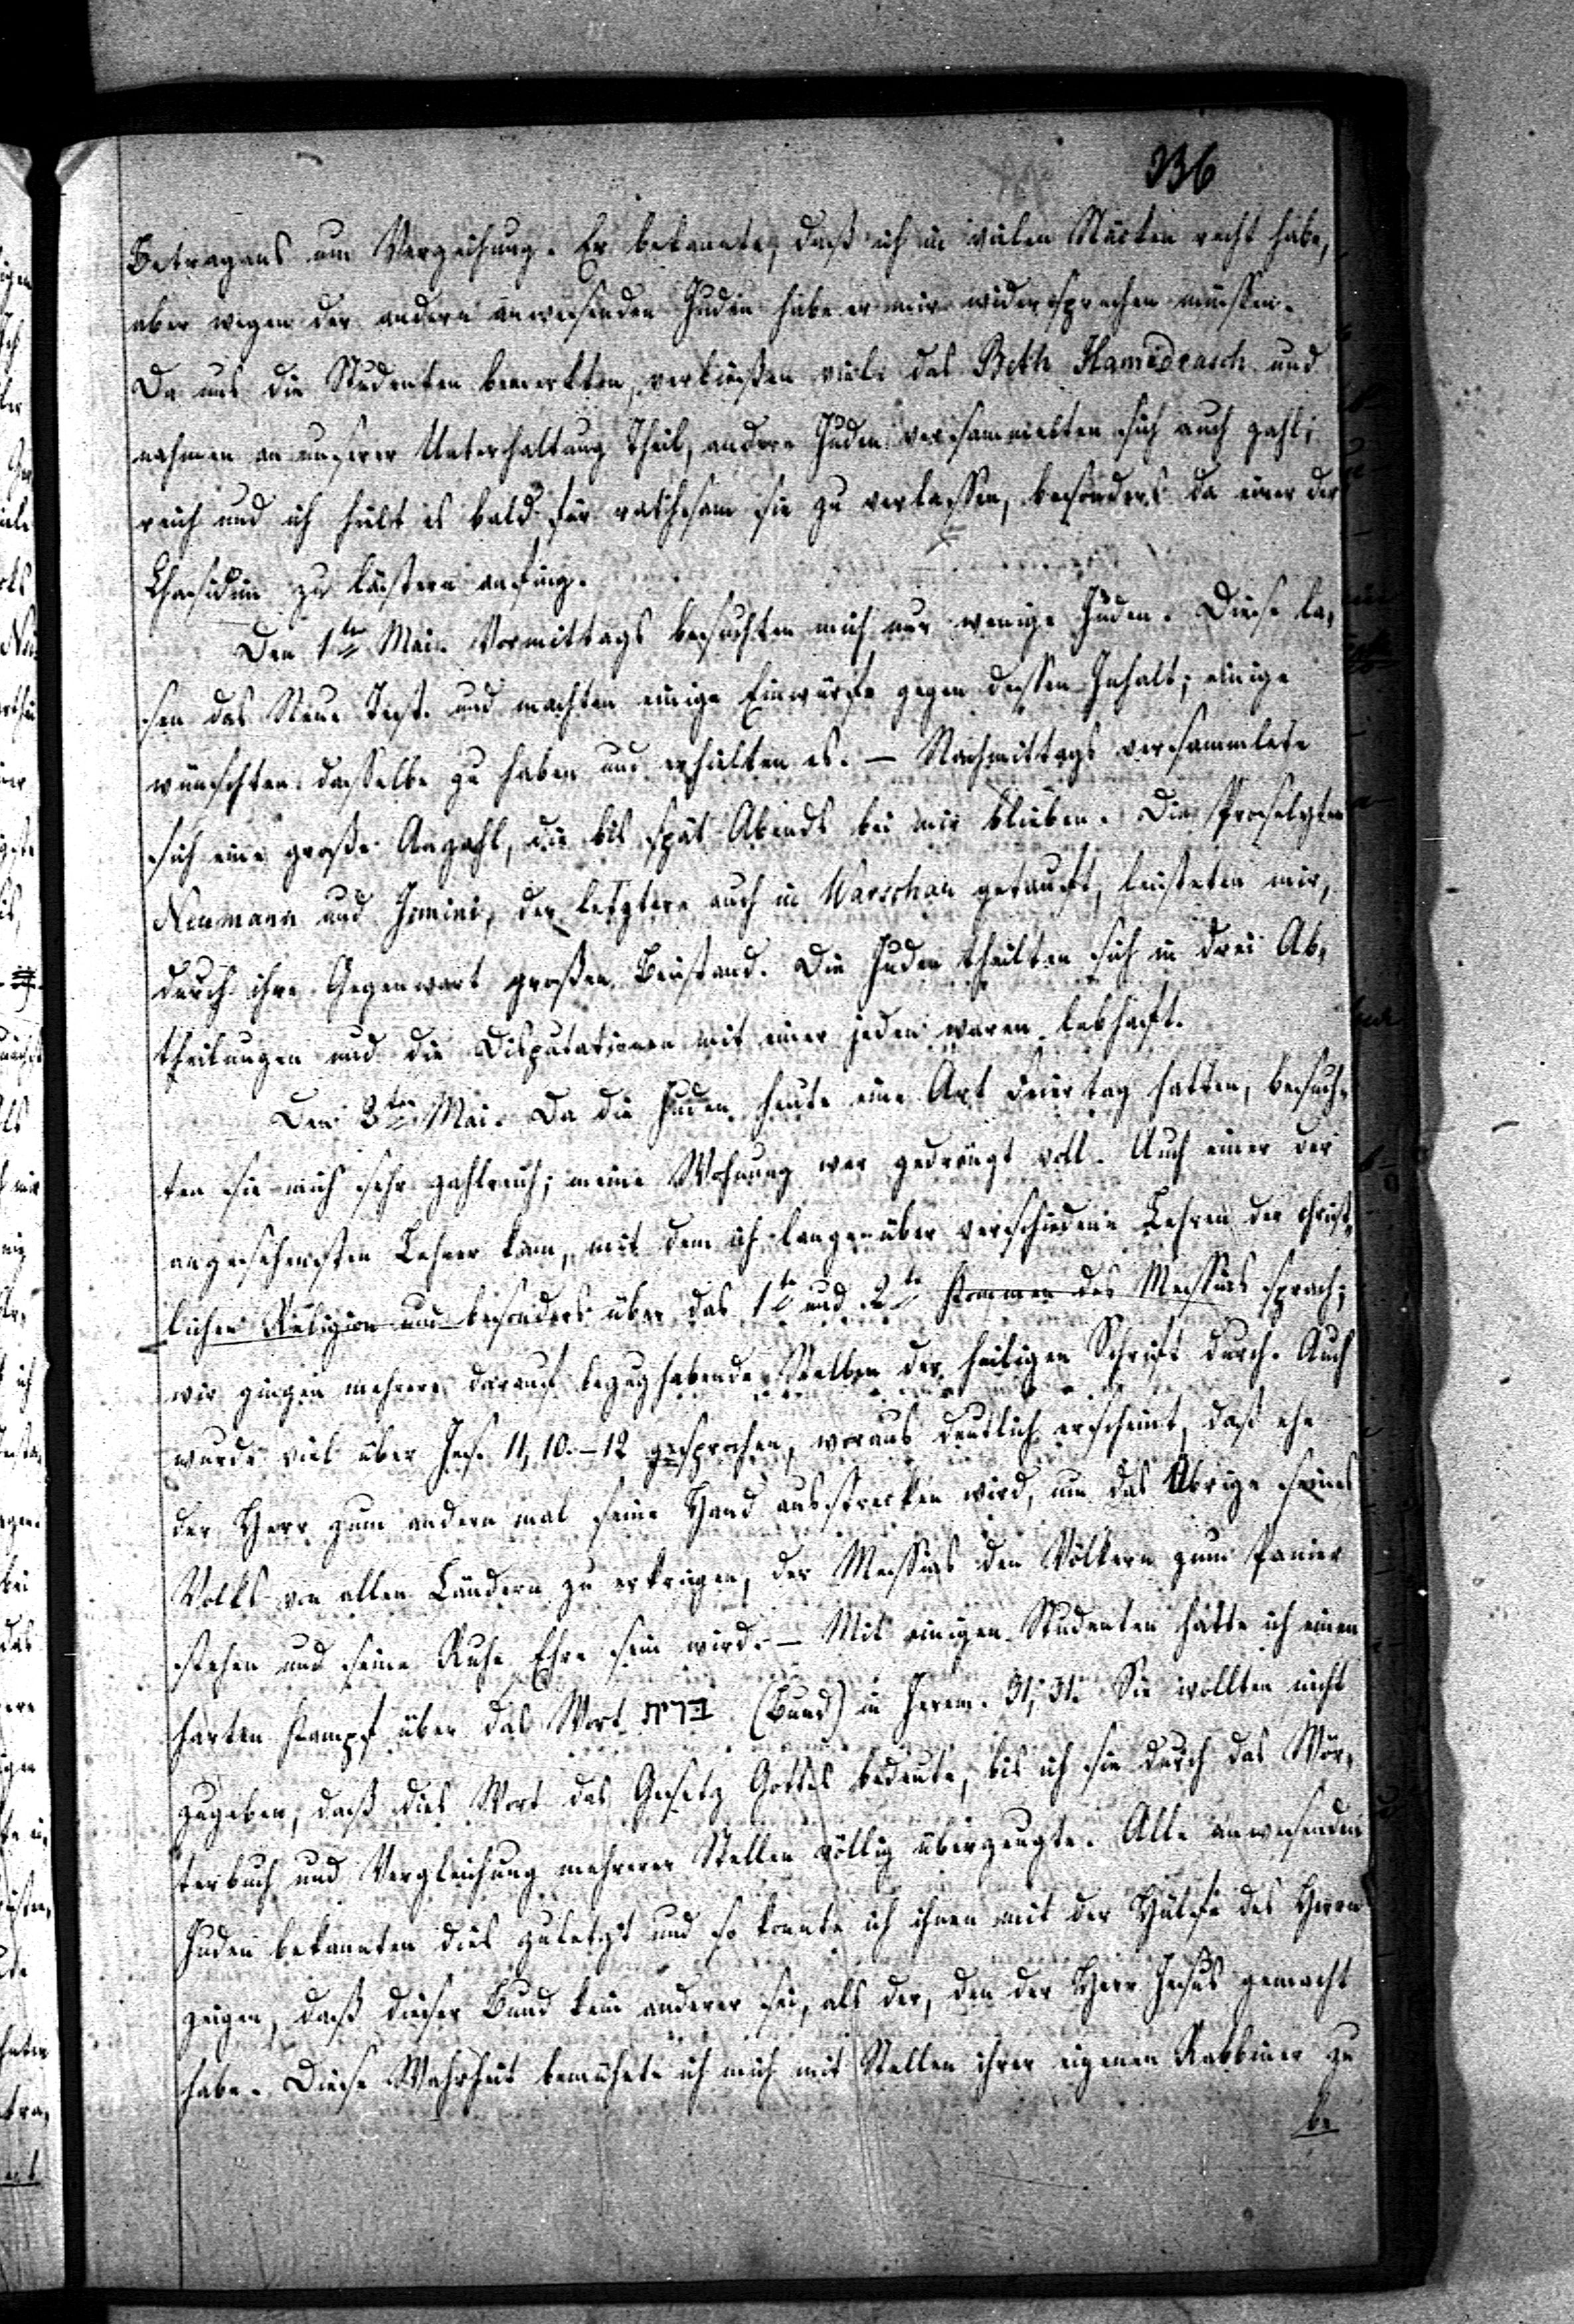 236
Betragens um Verzeihung. Er bekannte, daß ich in vielen Stücken recht habe,
aber wegen der andern anwesenden Juden habe er mir widersprechen müssen.
Da uns die Studenten bemerkten, verließen viele das Beth Hamidrasch und
nahmen an unserer Unterhaltung Theil, andere Juden versammelten sich auch zahl,
reich und ich hielt es bald für rathsam sie zu verlassen, besonders da einer der
Chasidim zu lästern anfing.
Den 1ten Mai. Vormittags besuchten mich nur wenige Juden. Diese la,
sen das Neue Test. und machten einige Einwürfe gegen dessen Inhalt; einige
wünschten dasselbe zu haben und erhielten es. – Nachmittags versammlete
sich eine große Anzahl, die bis spät Abends bei mir blieben. Die Proselyten
Neumann und Jomini, der letztere auch in Warschau getauft, leisteten mir,
durch ihre Gegenwart großen Beistand. Die Juden theilten sich in drei Ab,
theilungen und die Disputationen mit einer jeden waren lebhaft.
Den 3ten Mai. Da die Juden heute eine Art Feiertag hatten, besuch,
ten sie mich sehr zahlreich; meine Wohnung war gedrängt voll. Auch einer der
angesehensten Lehrer kam, mit dem ich lange über verschiedene Lehren der christ,
lichen Religion und besonders über das 1te und 2te Kommen des Messias sprach;
wir gingen mehrere darauf bezughabende Stellen der heiligen Schrift durch. Auch
wurde viel über Jes. 11, 10.–12 gesprochen, woraus deutlich erscheint, daß ehe
der Herr zum andern mal seine Hand ausstrecken wird, um das Übrige seines
Volks von allen Ländern zu erkriegen, der Messias den Völkern zum Panier
stehen und seine Ruhe Ehre sein wird. – Mit einigen Studenten hatte ich einen
harten Kampf über das Wort ברית (Bund) in Jerem. 31, 31. Sie wollten nicht
zugeben, daß dies Wort das Gesetz Gottes bedeute, bis ich sie durch das Wör,
terbuch und Vergleichung mehrerer Stellen völlig überzeugte. Alle anwesenden
Juden bekannten dies zuletzt und so konnte ich ihnen mit der Hülfe des Herrn
zeigen, daß dieser Bund kein anderer sei, als der, den der Herr Jesus gemacht
habe. Diese Wahrheit bemühete ich mich mit Stellen ihrer eigenen Rabbiner zu
be